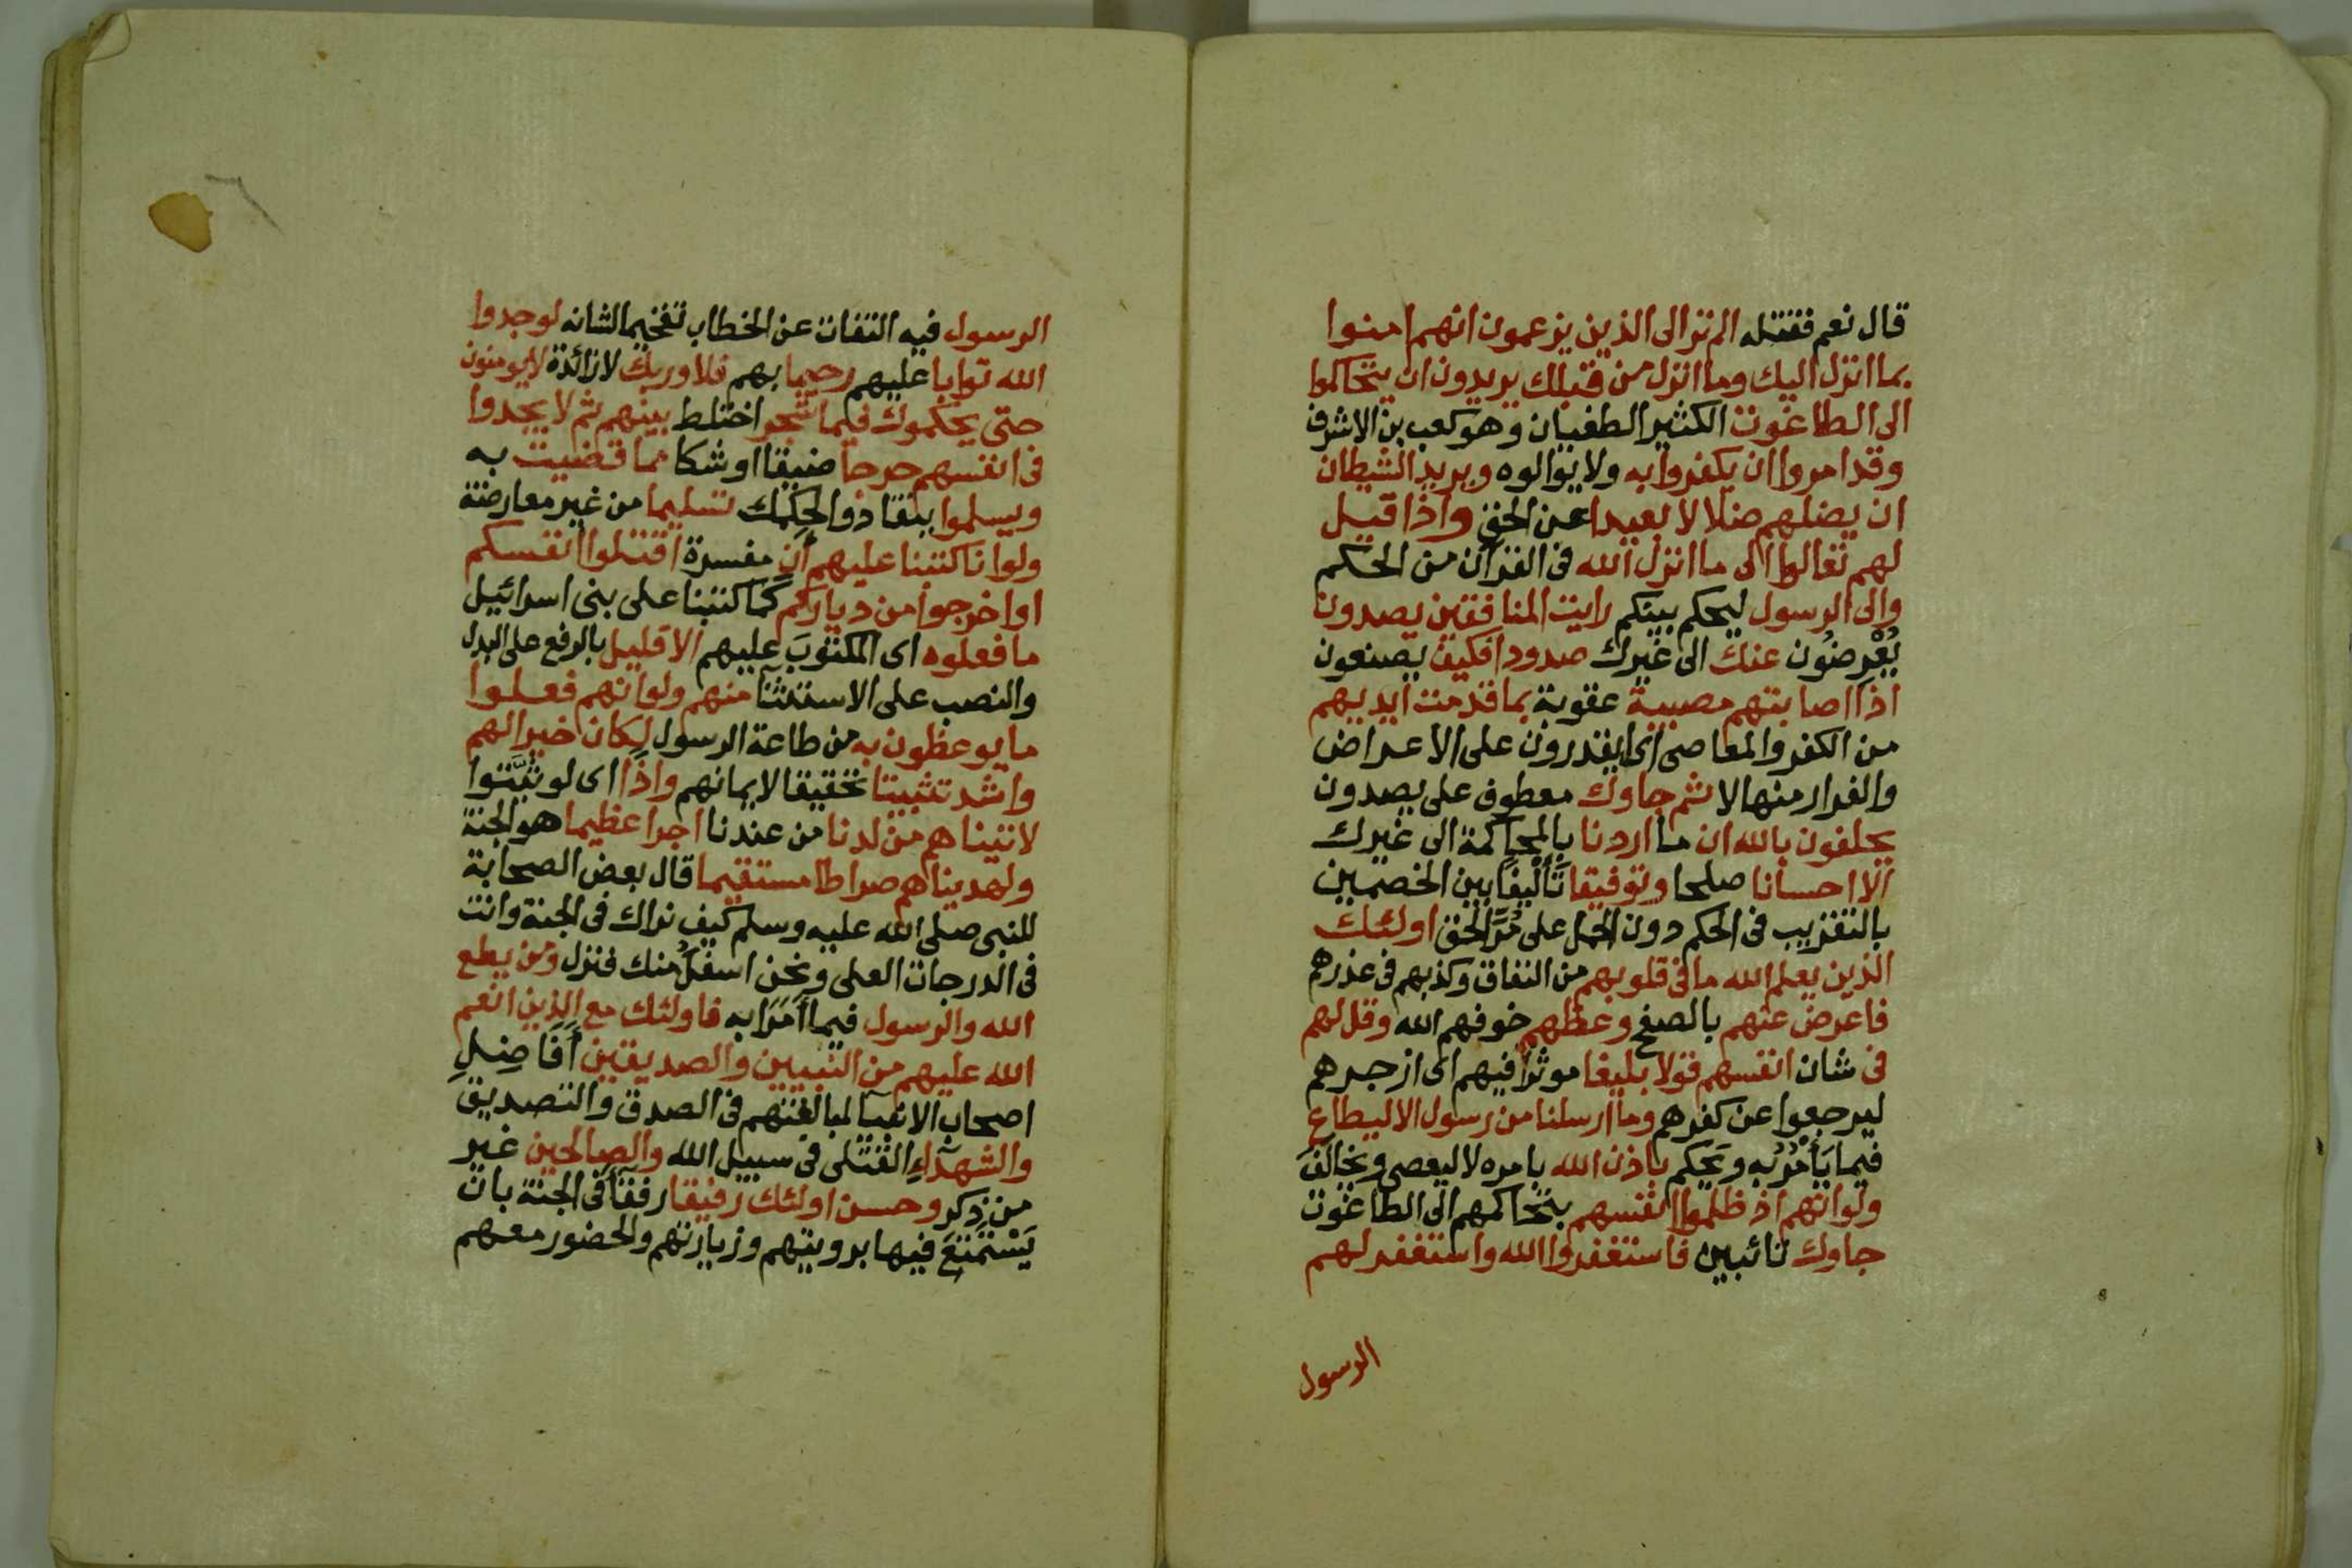 قال نعم فقتله الم تر الى الذين يزعمون انهم امنوا
بما انزل اليك وما انزل من قبلك يريدون ان يتحاكموا
الى الطاغوت الكثير الطغيان وهو كعب بن الاشرف
وقد امروا ان يكفروا به ولا يوالوه ويريد الشيطان
ان يضلهم ضلالا بعيدا عن الحق واذا قيل
لهم تعالوا الى ما انزل الله فى القرآن من الحكم
والى الرسول ليحكم بينكم رايت المنافقين يصدون
يُعْرِضُون عنك الى غيرك صدودا فكيف يصنعون
اذا اصابتهم مصيبة عقوبة بما قدمت ايديهم
من الكفر والمعاصى اى ايقدرون على الاعراض
والفرار منها لا ثم جاوك معطوف على يصدون
يحلفون بالله ان ما اردنا بالمحاكمة الى غيرك
الا احسانا صلحا وتوفيقا تَأْلِيفًا بين الخصمين
بالتقريب فى الحكم دون الحمل على مُرِّ الحق اولئك
الذين يعلم الله ما فى قلوبهم من النفاق وكذبهم فى عذرهم
فاعرض عنهم بالصفح وعظهم خوفهم الله وقل لهم
فى شان انفسهم قولا بليغا موثرا فيهم اى ازجرهم
ليرجعوا عن كفرهم وما ارسلنا من رسول الا ليطاع
فيما يَأْمُرُ به ويحكم باذن الله بامره لا ليعصى ويخالَفَ
ولو انهم اذ ظلموا انفسهم بتحاكمهم الى الطاغوت
جاوك تائبين فاستغفروا الله واستغفر لهم
الرسول
الرسول فيه التفات عن الخطاب تفخيما لشانه لوجدوا
الله توابا عليهم رحيما بهم فلا وربك لا زائدة لا يومنون
حتى يحكموك فيما شجر اختلط بينهم ثم لا يجدوا
فى انفسهم حرجا ضيقا او شكا مما قضيت به
ويسلموا ينقادوا لحكمك تسليما من غير معارضة
ولو انا كتبنا عليهم أن مفسرة اقتلوا انفسكم
او اخرجوا من دياركم كما كتبنا على بنى اسرائيل
ما فعلوه اى المكتوبَ عليهم الا قليل بالرفع على البدل
والنصب على الاستثنآ منهم ولو انهم فعلوا
ما يوعظون به من طاعة الرسول لكان خيرا لهم
واشد تثبيتا تحقيقا لايمانهم واذا اى لو ثَبَّتوا
لاتيناهم من لدنا من عندنا اجرا عظيما هو الجنة
ولهديناهم صراطا مستقيما قال بعض الصحابة
للنبى صلى الله عليه وسلم كيف نراك فى الجنة وانت
فى الدرجات العلى ونحن اسفلُ منك فنزل ومن يطع
الله والرسول فيما أَمَرَا به فاولئك مع الذين انعم
الله عليهم من النبيين والصديقين أَفَاضِلِ
اصحاب الانبيآ لمبالغتهم فى الصدق والتصديق
والشهدآءِ القتلى فى سبيل الله والصالحين غير
من ذكر وحسن اولئك رفيقا رفقآ فى الجنة بان
يَسْتَمْتِعَ فيها برويتهم وزيارتهم والحضور معهم